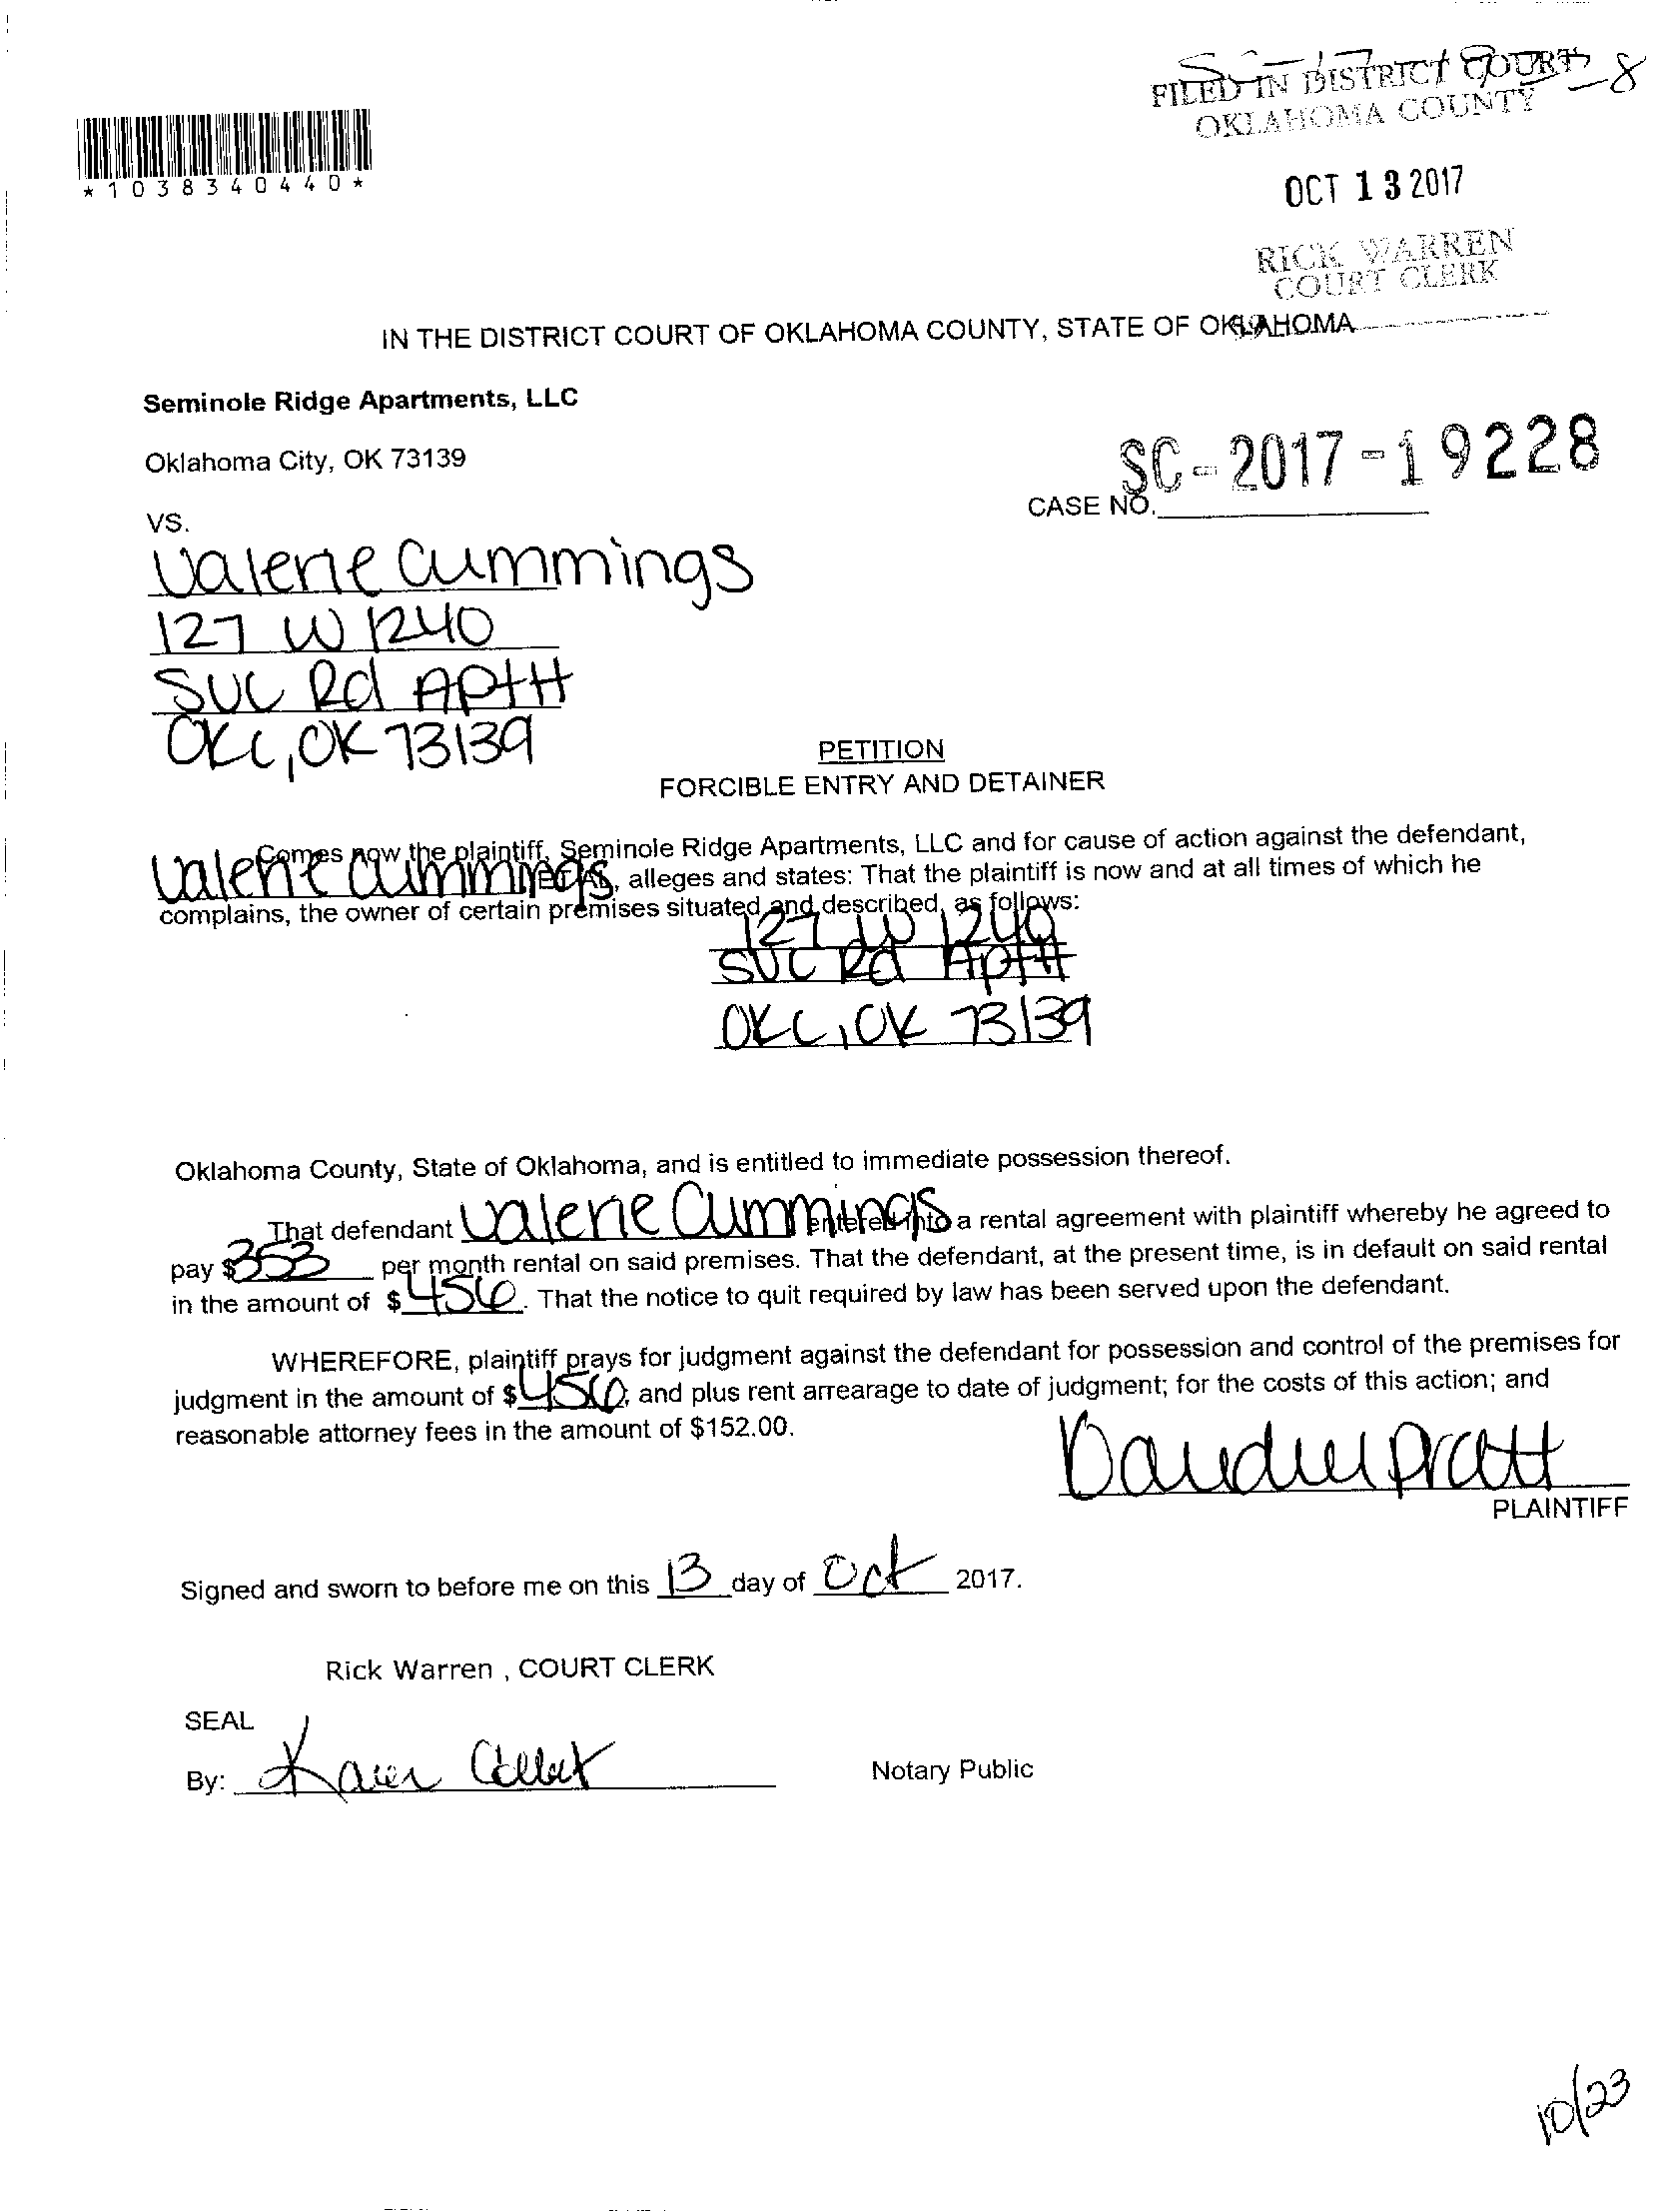 FILED IN DISTRICT COURT
OKLAHOMA COUNTY
*1038340440*
OCT 13 2017
RICK WARREN
COURT CLERK
IN THE DISTRICT COURT OF OKLAHOMA COUNTY, STATE OF OKLAHOMA
Seminole Ridge Apartments, LLC
Oklahoma City, OK 73139
SC-2017-19228
CASE NO.
VS.
Valerie Cummings
127 W 1240
SVC Rd APt H
OKC, OK 73139
PETITION
FORCIBLE ENTRY AND DETAINER
Comes now the plaintiff, Seminole Ridge Apartments, LLC and for cause of action against the defendant,
Valerie Cummings ET AL, alleges and states: That the plaintiff is now and at all times of which he
complains, the owner of certain premises situated and described, as follows:
127 W 1240
SVC Rd Apt H
OKC, OK 73139
Oklahoma County, State of Oklahoma, and is entitled to immediate possession thereof.
That defendant Valerie Cummings entered into a rental agreement with plaintiff whereby he agreed to
pay $353 per month rental on said premises. That the defendant, at the present time, is in default on said rental
in the amount of $456. That the notice to quit required by law has been served upon the defendant.
WHEREFORE, plaintiff prays for judgment against the defendant for possession and control of the premises for
judgment in the amount of $456; and plus rent arrearage to date of judgment; for the costs of this action; and
reasonable attorney fees in the amount of $152.00.
Pratt
PLAINTIFF
Signed and sworn to before me on this 13 day of Oct 2017.
Rick Warren , COURT CLERK
SEAL
By: Karen
Notary Public
10/23